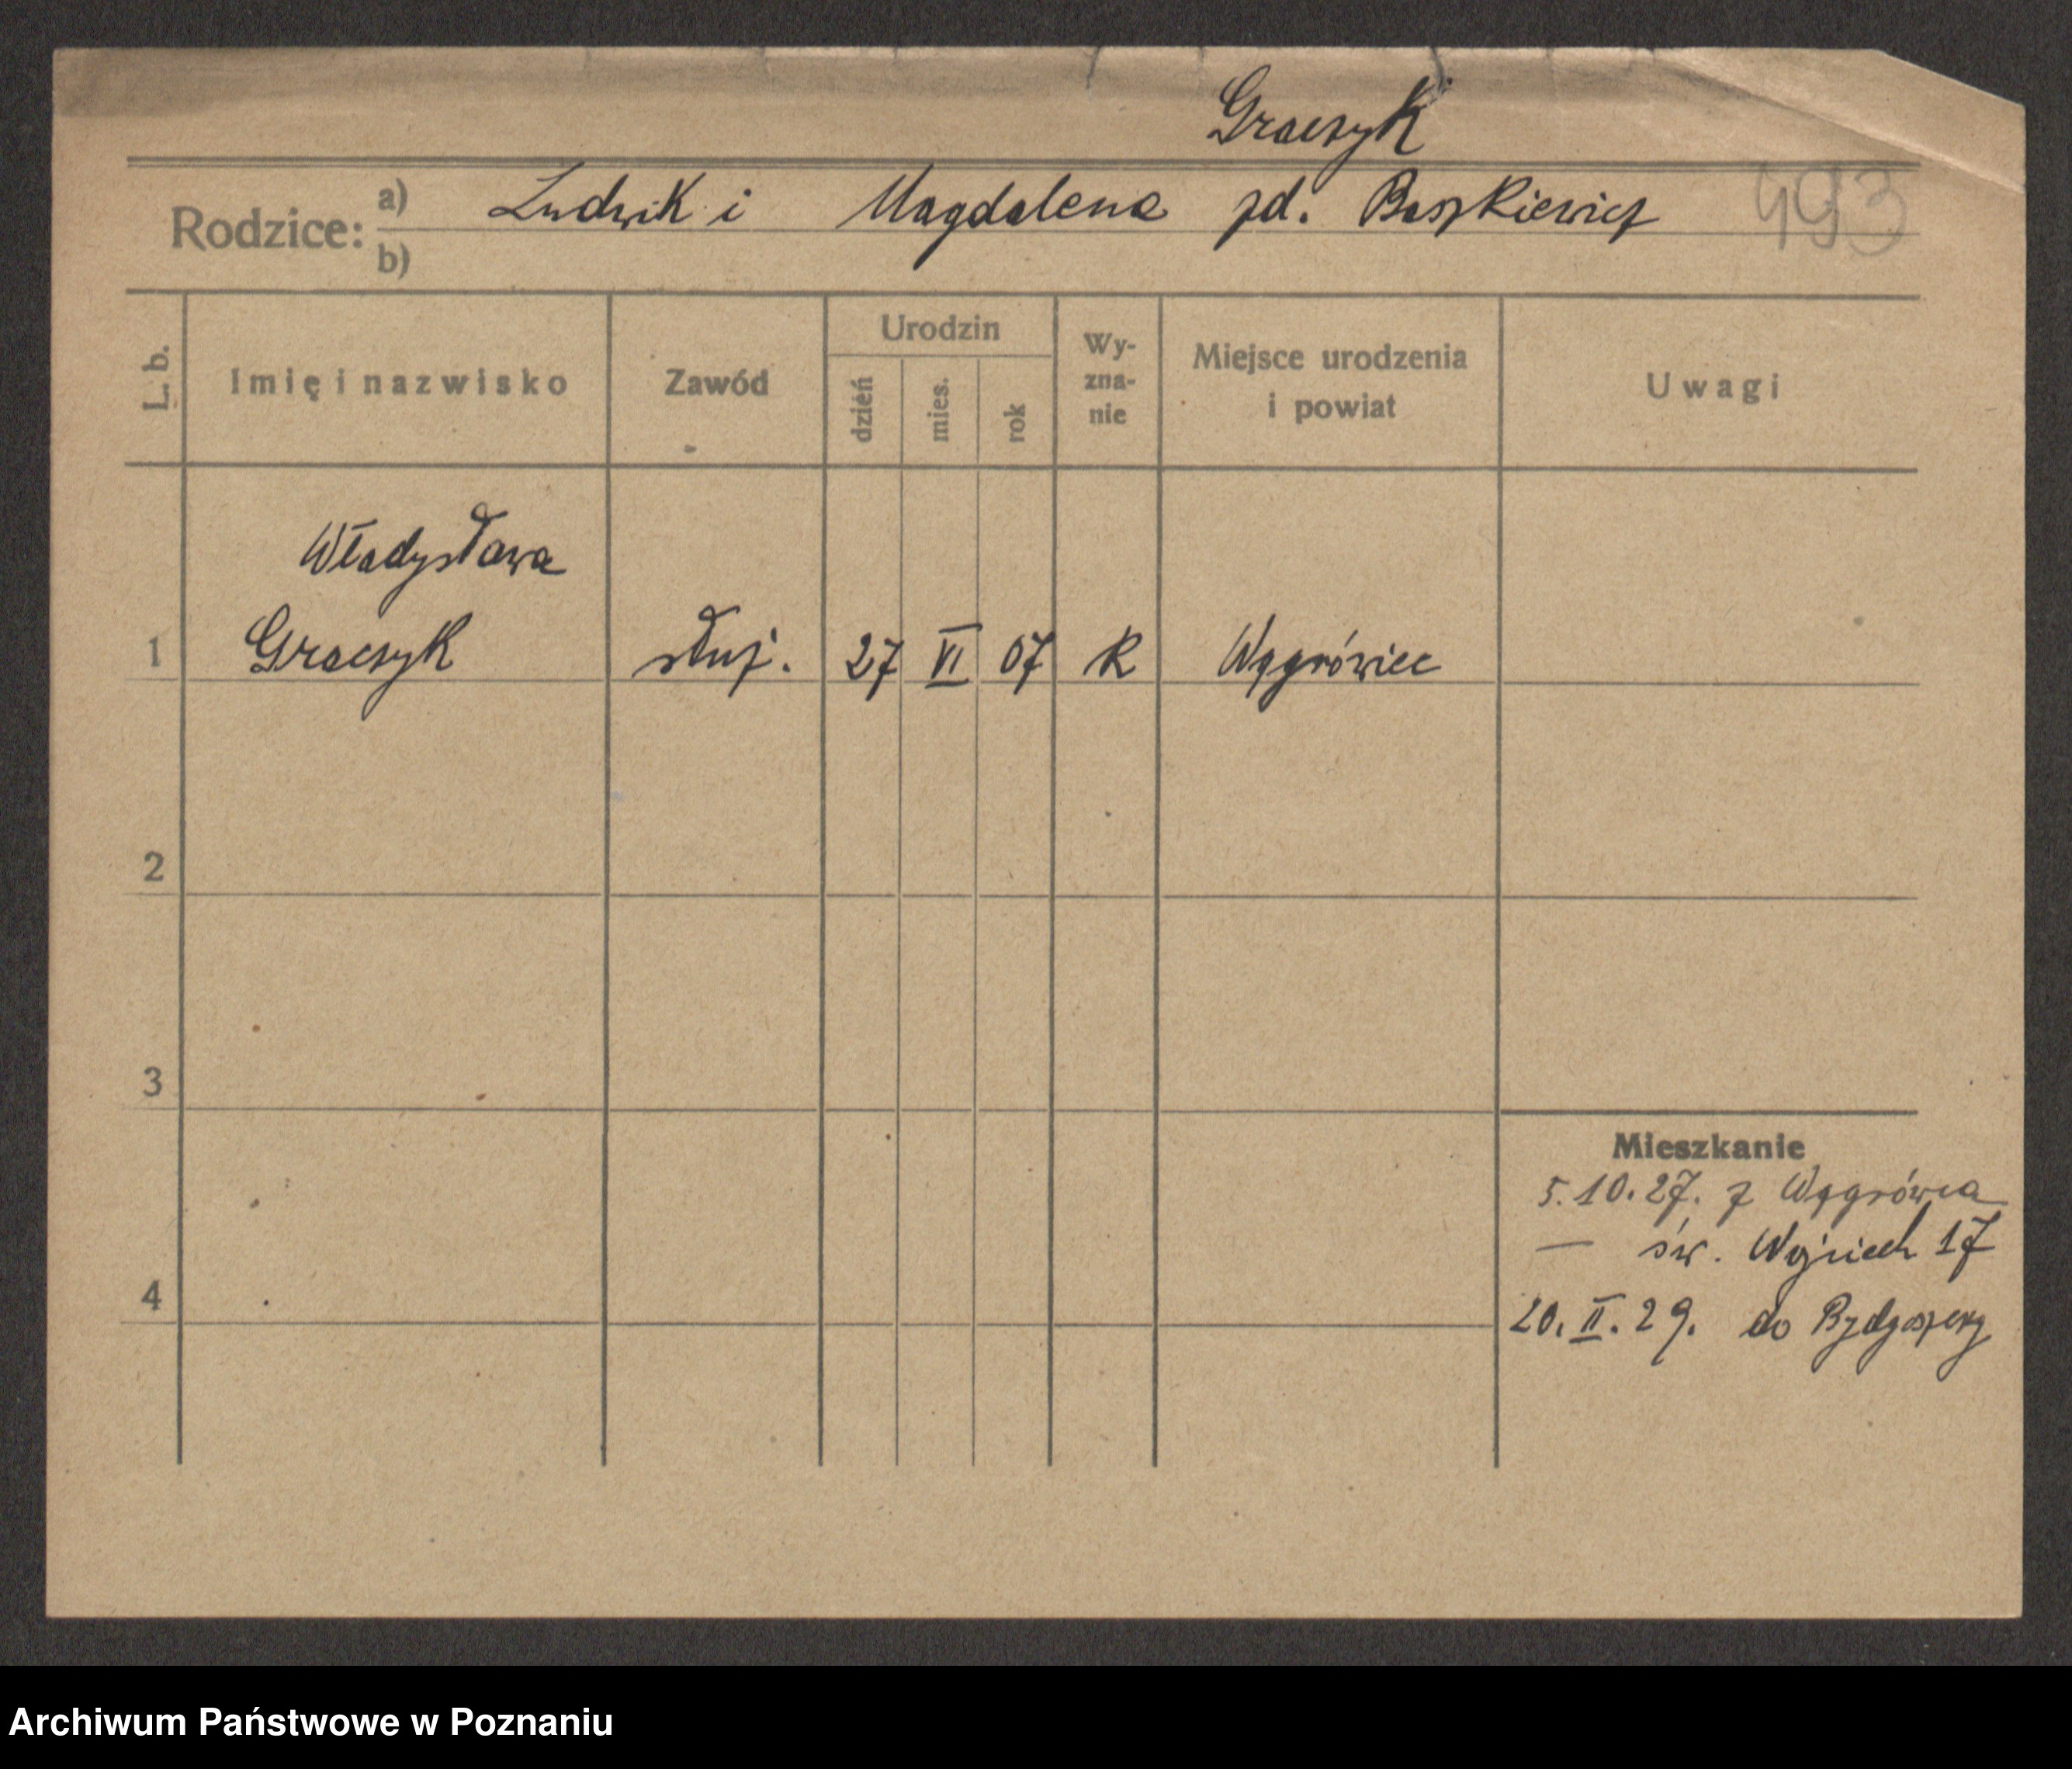 Graczyk
Rodzice: a) Ludwik i Magdalena zd. Baszkiewicz 493
b)
L. b. Imię i nazwisko Zawód Urodzin dzień mies. rok Wy-zna-nie Miejsce urodzenia i powiat Uwagi
Władysława
1 Graczyk służ. 27 VI 07 R Wągrówiec
2
3
Mieszkanie
5.10.27. z Wągrówca
— św. Wojciech 17
4
20. II. 29. do Bydgoszczy
Archiwum Państwowe w Poznaniu